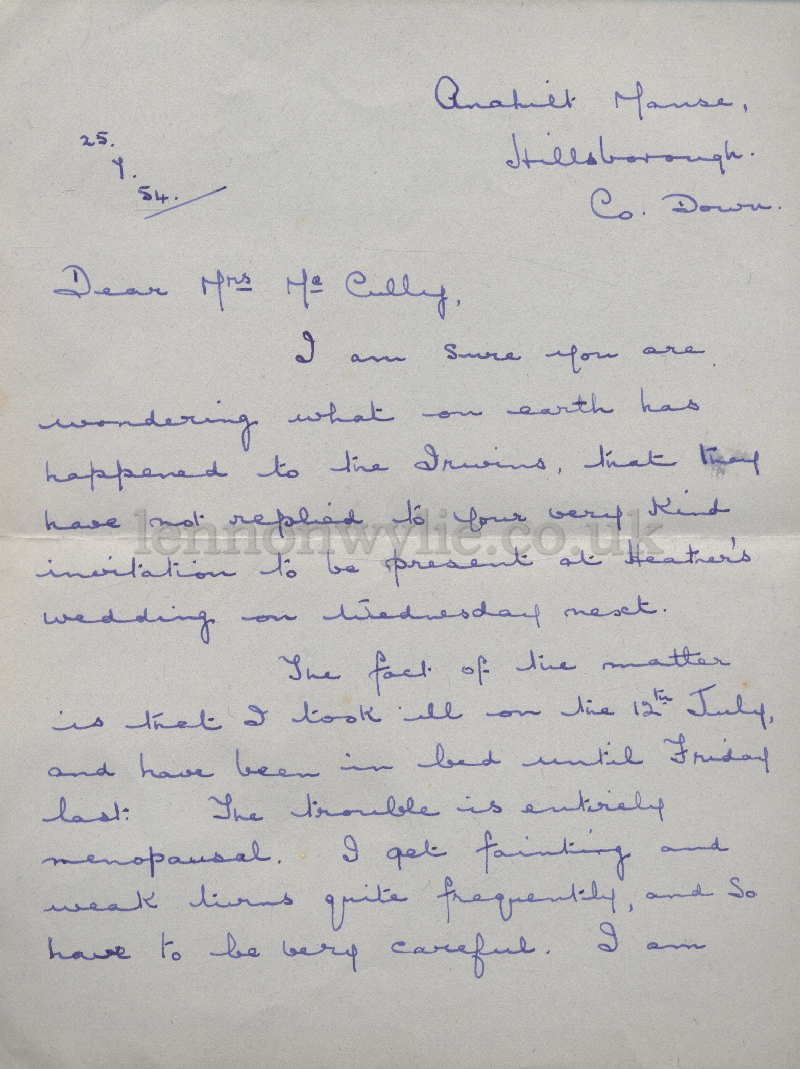 Anahilt Manse,
Hillsborough.
Co. Down.
25.
7.
54.
Dear Mrs Mc Cully,
I am sure you are
wondering what on earth has
happened to the Irwins, that they
have not replied to your very kind
lennonwylie.co.uk
invitation to be present at Heather's
wedding on Wednesday next.
The fact of the matter
is that I took ill on the 12th July,
and have been in bed until Friday
last. The trouble is entirely
menopausal. I get fainting and
weak turns quite frequently, and so
have to be very careful. I am